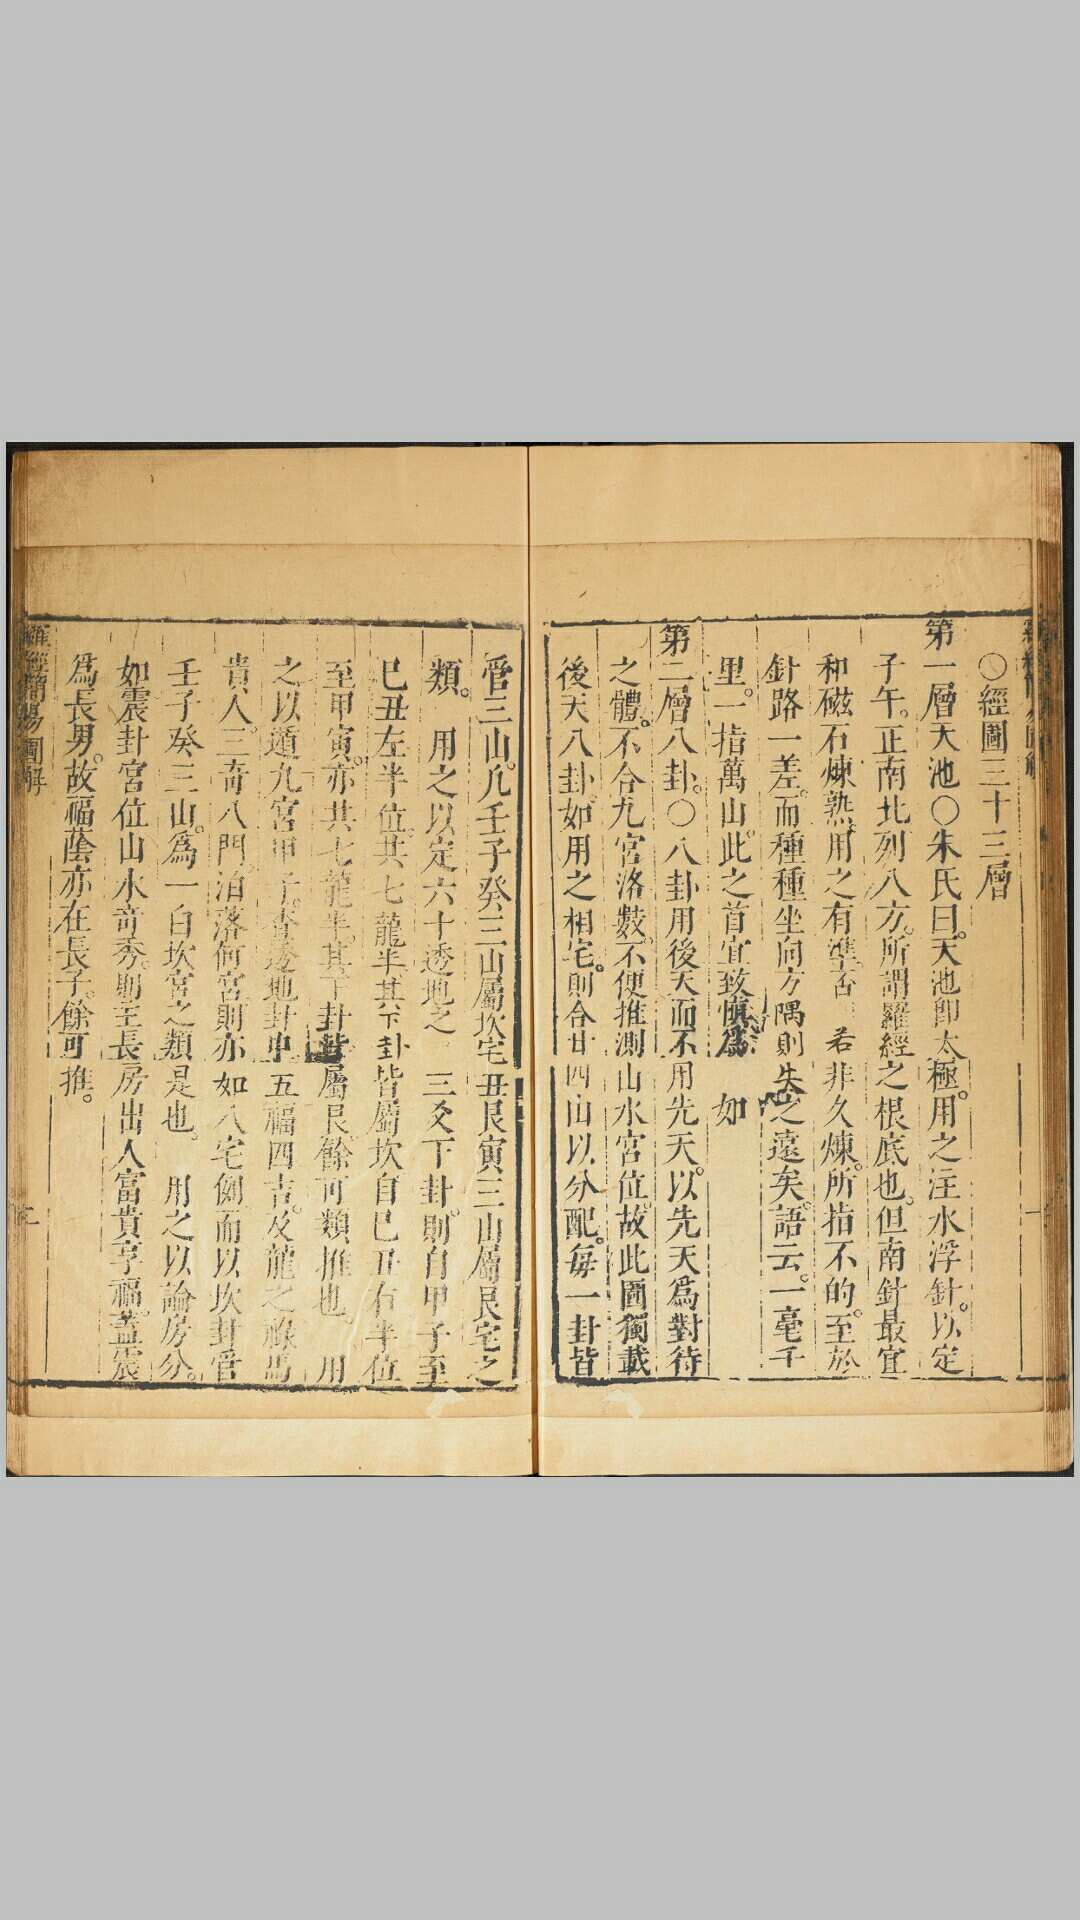 ○經圖三十三層
第一層天池○朱氏曰。天池即太極。用之注水浮針。以定
子午。正南北。列八方。所謂羅經之根底也。但南針最宜
和磁石煉熟。用之有準。否 若非久煉。所指不的。至於
針路一差。而種種坐向方隅。則失之遠矣。語云。一毫千
里。一指萬山。此之首宜致慎為 如
第二層八卦。○八卦用後天而不用先天。以先天為對待
之體。不合九宮洛數。不便推測山水宮位。故此圖獨載
後天八卦。如用之相宅。則合廿四山以分配。每一卦皆
管三山。凡壬子癸三山屬坎宅。丑艮寅三山屬艮宅之
類。 用之以定六十透地之 三爻下卦。則自甲子至
巳丑左半位。共七龍半。其下卦皆屬坎。自巳丑右半位
至甲寅。亦共七龍半。其下卦皆屬艮。餘可類推也。 用
之以遁九宮甲子。查透地卦中。五福四吉。及龍之祿馬
貴人。三奇八門。泊落何宮。則亦 如八宅例而以坎卦管
壬子癸三山。為一白坎宮之類是也。 用之以論房分。
如震卦宮位山水奇秀。則主長房出人富貴亨福。蓋震
為長男。故福蔭亦在長子。餘可推。
羅經簡易圖解